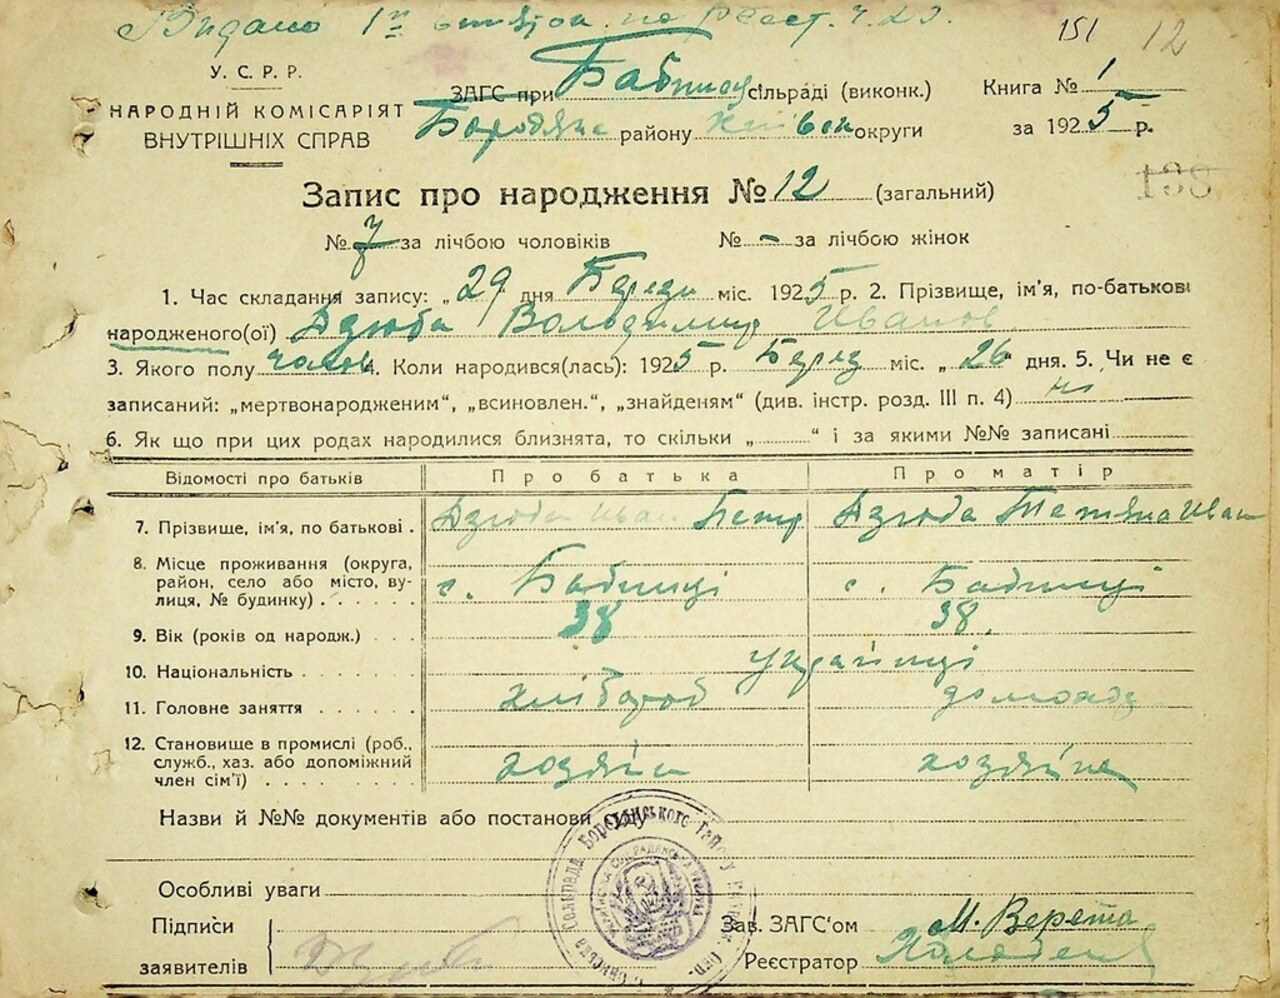 Видано 1й по Реєст. ч. 23.
151 12
У. С. Р. Р.
НАРОДНІЙ КОМІСАРІЯТ
ВНУТРІШНІХ СПРАВ
ЗАГС при Бабинец сільраді (виконк.) Книга № 1
Бородянс району Київск округи за 1925 р.
138
Запис про народження № 12 (загальний)
№ 7 за лічбою чоловіків № - за лічбою жінок
1. Час складання запису: „29" дня Берези міс. 1925 р. 2. Прізвище, ім'я, по-батькові
народженого(ої) Дзюба Володимир Иванов
3. Якого полу чолов 4. Коли народився(лась): 1925 р. Берез міс. „26 дня. 5. Чи не є
записаний: „мертвонародженим", „всиновлен.", „знайденям" (див. інстр. розд. III п. 4) ні
6. Як що при цих родах народилися близнята, то скільки „ " і за якими №№ записані
Відомості про батьків Про батька Про матір
7. Прізвище, ім'я, по батькові . Дзюба Иван Петр Дзюба Тетяна Иван
8. Місце проживання (округа,
район, село або місто, ву-
лиця, № будинку) . . . . . с. Бабинці с. Бабинці
9. Вік (років од народж.) . . . 38 38.
10. Національність . . . . . . . українці
11. Головне заняття . . . . . хлібороб домохаз
12. Становище в промислі (роб.,
служб., хаз. або допоміжний
член сім'ї) . . . . . . . . хозяїн хозяйка
Назви й №№ документів або постанови
Особливі уваги
Підписи
заявителів Дзюба
Зав. ЗАГС'ом М. Верета
Реєстратор